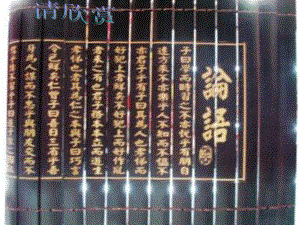 请欣赏
論語
子曰學而時習之不亦說乎有朋自
遠方來不亦樂乎人不知而不慍不
亦君子乎有子曰其爲人也孝悌而
好犯上者鮮矣不好犯上而好作亂
者未之有也君子務本本立而道生
孝悌也者其爲仁之本與子曰巧言
令色鮮矣仁曾子曰吾日三省吾
身爲人謀而不忠乎與朋友交而不